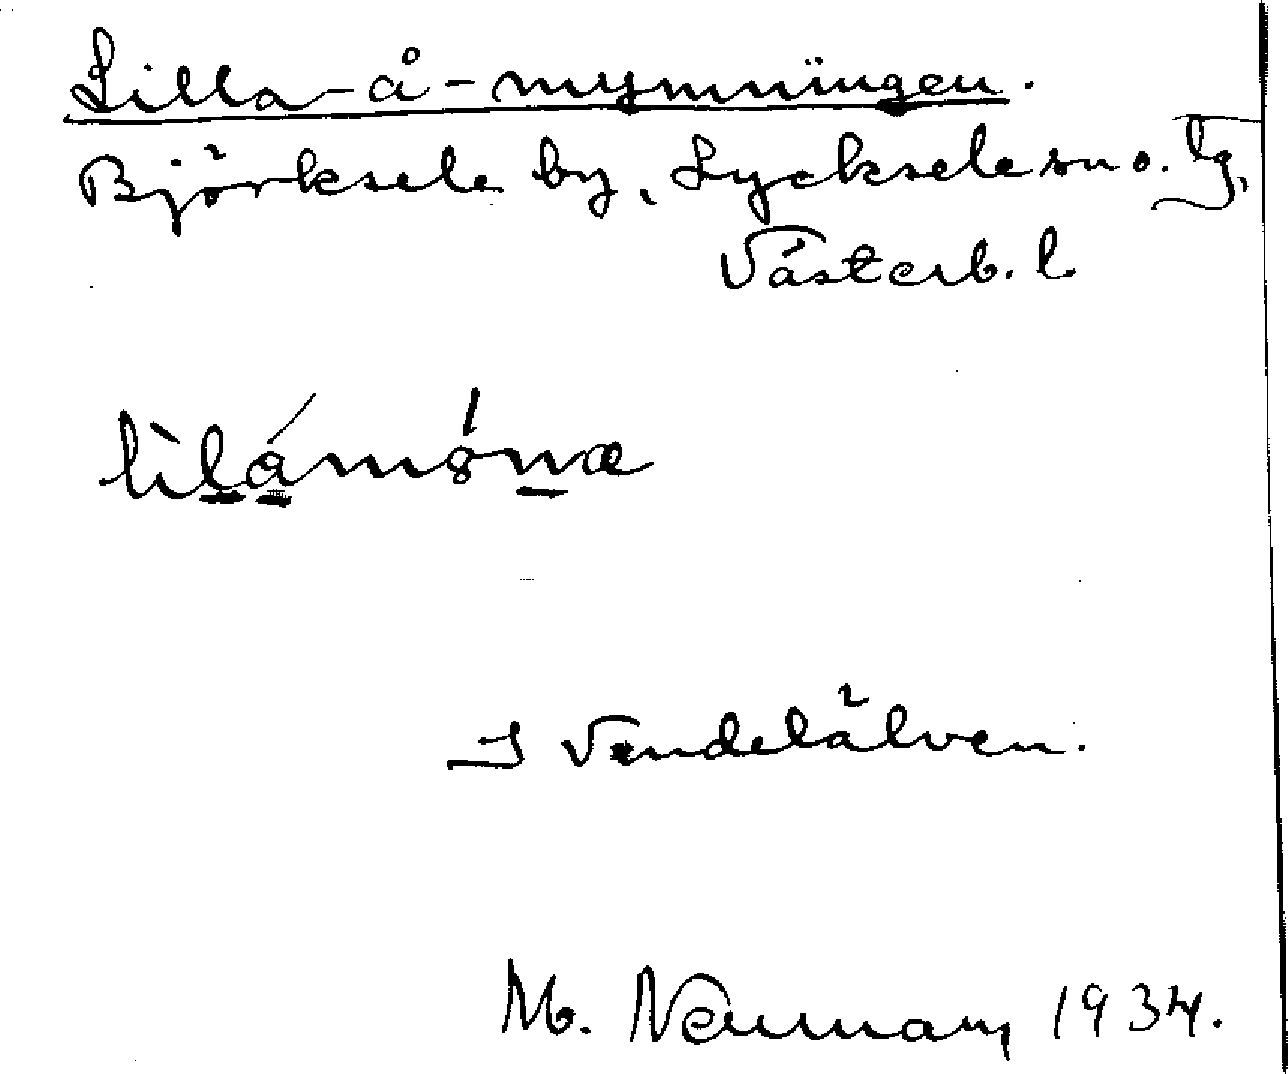 Lilla-å-mynningen.
Björksele by, Lycksele sn o. lg,
Västerb. l.
I Vendelälven.
M. Neuman, 1934.